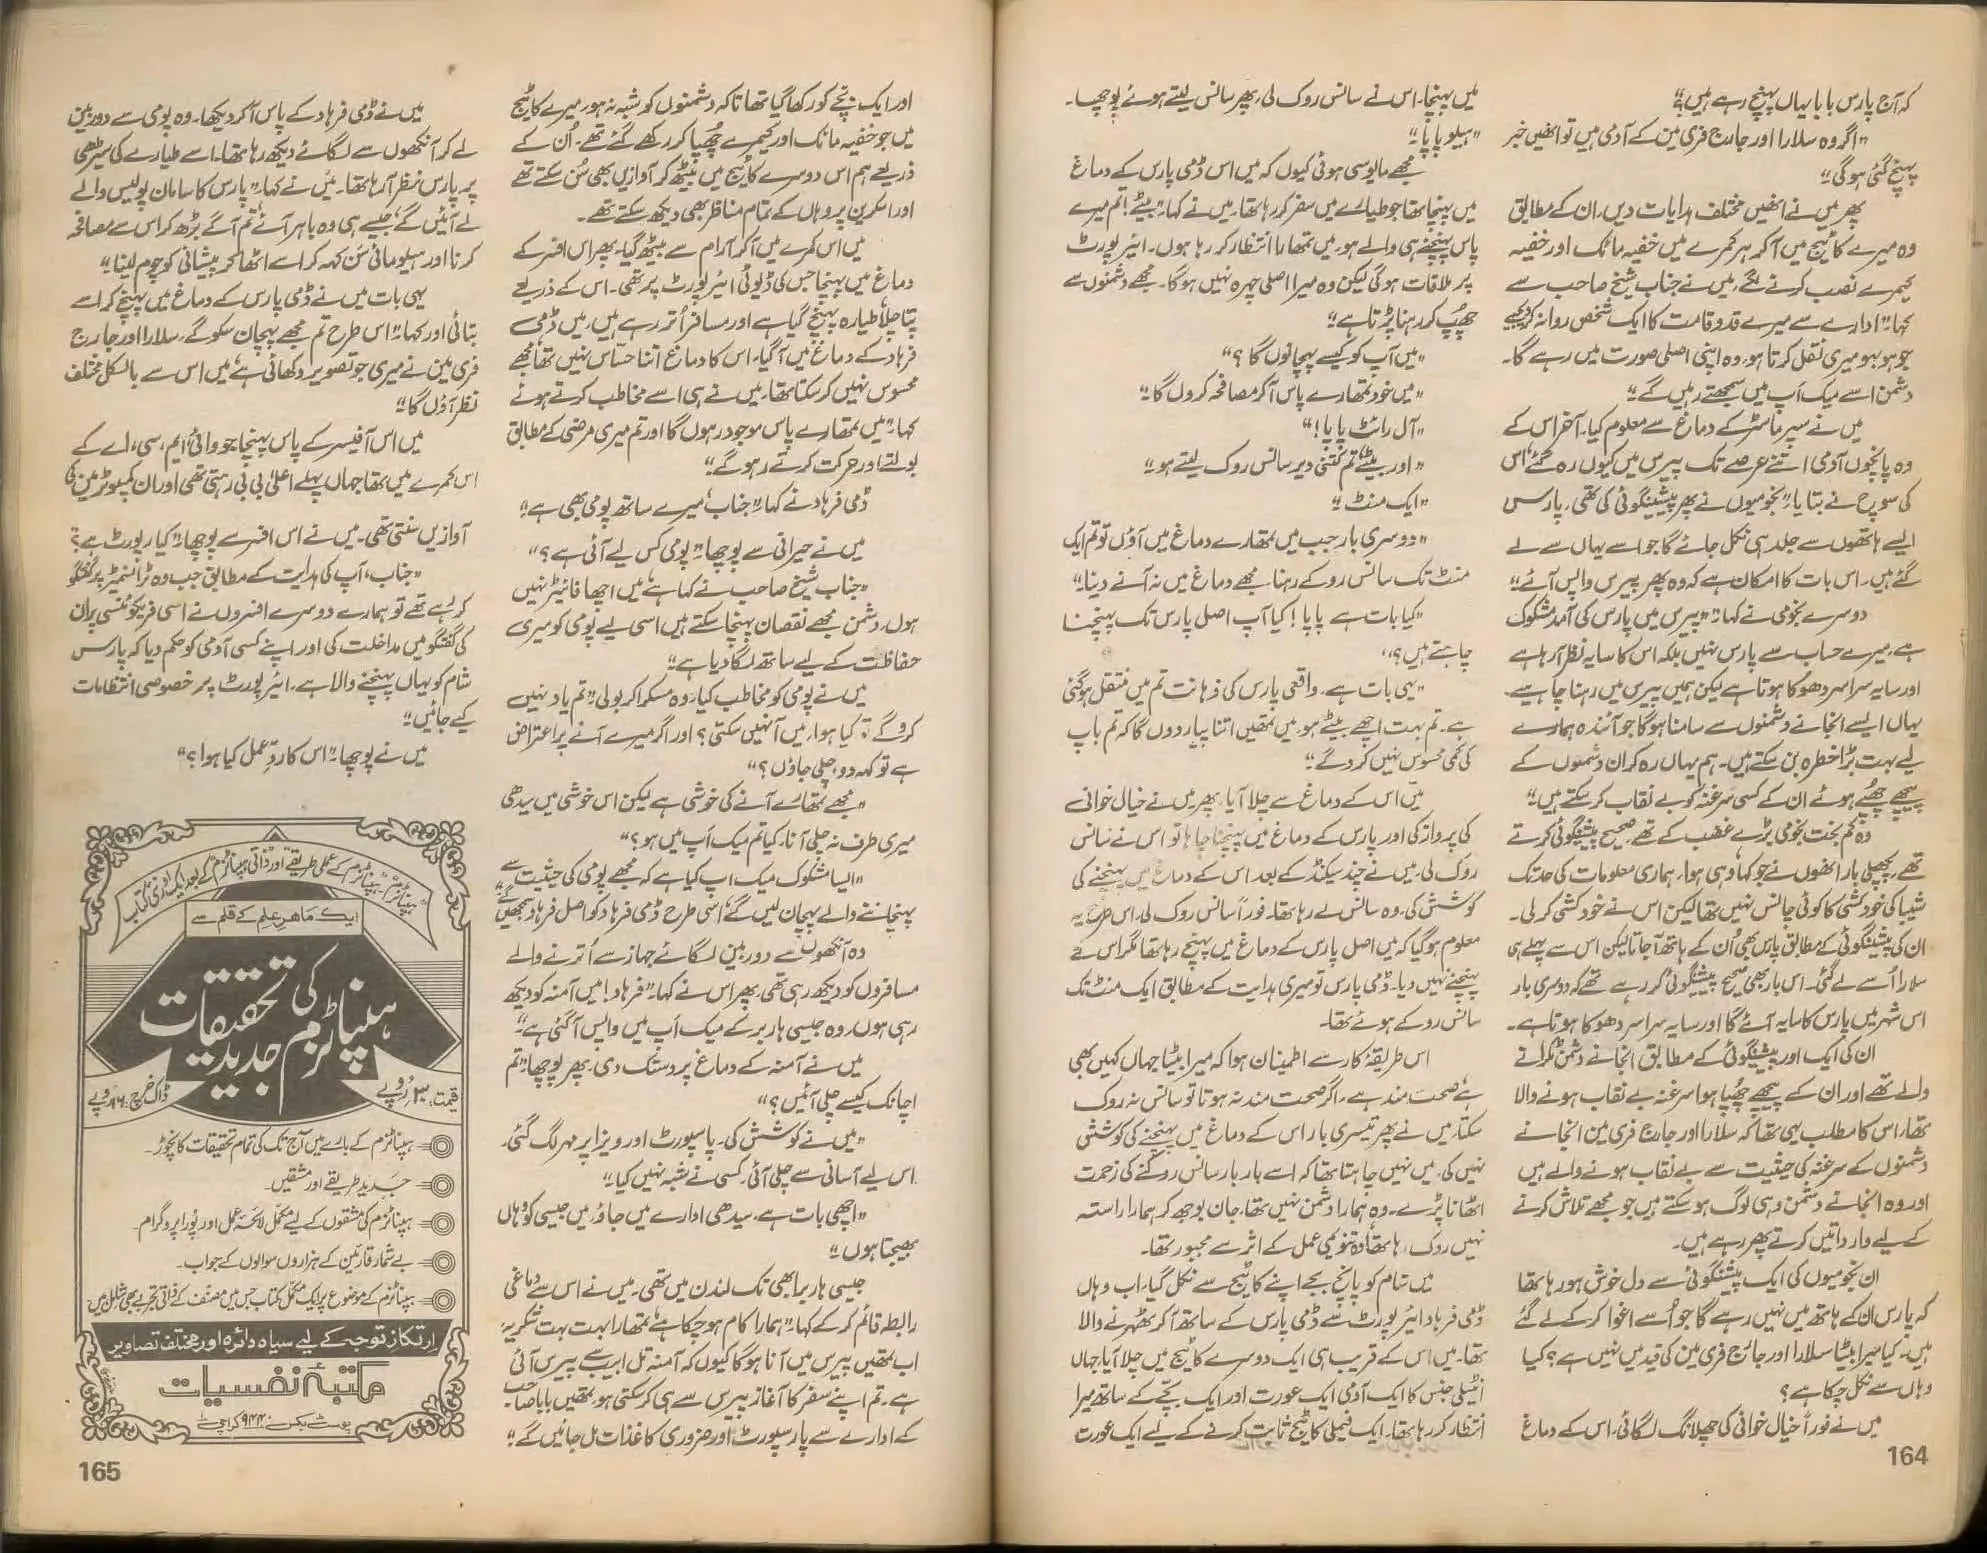 کہ آج پارس بابا یہاں پہنچ رہے ہیں؟“
”اگر وہ سلارا اور جارج فری مین کے آدمی ہیں تو انھیں خبر
پہنچ گئی ہوگی“
پھر میں نے انھیں مختلف ہدایات دیں، ان کے مطابق
وہ میرے کاٹیج میں آ کر ہر کمرے میں خفیہ مائک اور خفیہ
کیمرے نصب کرنے لگے، میں نے جناب شیخ صاحب سے
کہا۔”ادارے سے میرے قد و قامت کا ایک شخص روانہ کر دیجیے
جو ہو بہو میری نقل کرتا ہو، وہ اپنی اصلی صورت میں رہے گا۔
دشمن اسے میک اَپ میں سمجھتے رہیں گے“
میں نے سپر ماسٹر کے دماغ سے معلوم کیا۔ آخر اس کے
وہ پانچوں آدمی اتنے عرصے تک پیرس میں کیوں رہ گئے، اس
کی سوچ نے بتایا۔”نجومیوں نے پھر پیشینگوئی کی تھی، پارس
ایسے ہاتھوں سے جلد ہی نکل جائے گا جو اسے یہاں سے لے
گئے ہیں۔ اس بات کا امکان ہے کہ وہ پھر پیرس واپس آئے“
دوسرے نجومی نے کہا۔”پیرس میں پارس کی آمد مشکوک
ہے، میرے حساب سے پارس نہیں بلکہ اس کا سایہ نظر آ رہا ہے
اور سایہ سراسر دھوکا ہوتا ہے لیکن ہمیں پیرس میں رہنا چاہیے۔
یہاں ایسے انجانے دشمنوں سے سامنا ہوگا جو آئندہ ہمارے
لیے بہت بڑا خطرہ بن سکتے ہیں۔ ہم یہاں رہ کر ان دشمنوں کے
پیچھے چھپے ہوئے ان کے کسی سرغنہ کو بے نقاب کر سکتے ہیں“
وہ کم بخت نجومی بڑے غضب کے تھے، صحیح پیشینگوئی کرتے
تھے، پچھلی بار انھوں نے جو کہا وہی ہوا، ہماری معلومات کی حد تک
شیبا کی خودکشی کا کوئی چانس نہیں تھا لیکن اس نے خودکشی کر لی۔
ان کی پیشینگوئی کے مطابق پارس بھی اُن کے ہاتھ آ جاتا لیکن اس سے پہلے ہی
سلارا اسے لے گئی۔ اس بار بھی صحیح پیشینگوئی کر رہے تھے کہ دوسری بار
اس شہر میں پارس کا سایہ آئے گا اور سایہ سراسر دھوکا ہوتا ہے۔
ان کی ایک اور پیشینگوئی کے مطابق انجانے دشمن ٹکرانے
والے تھے اور ان کے پیچھے چھپا ہوا سرغنہ بے نقاب ہونے والا
تھا، اس کا مطلب یہی تھا کہ سلارا اور جارج فری مین انجانے
دشمنوں کے سرغنہ کی حیثیت سے بے نقاب ہونے والے ہیں
اور وہ انجانے دشمن وہی لوگ ہو سکتے ہیں جو مجھے تلاش کرنے
کے لیے وارداتیں کرتے پھر رہے ہیں۔
ان نجومیوں کی ایک پیشینگوئی سے دل خوش ہو رہا تھا
کہ پارس ان کے ہاتھ میں نہیں رہے گا جو اُسے اغوا کر کے لے گئے
ہیں۔ کیا میرا بیٹا سلارا اور جارج فری مین کی قید میں نہیں ہے؟ کیا
وہاں سے نکل چکا ہے؟
میں نے فوراً خیال خوانی کی چھلانگ لگائی، اس کے دماغ
164
میں پہنچا۔ اس نے سانس روک لی، پھر سانس لیتے ہوئے پوچھا۔
”ہیلو پاپا“
مجھے مایوسی ہوئی کیوں کہ میں اس ڈمی پارس کے دماغ
میں پہنچا تھا جو طیارے میں سفر کر رہا تھا، میں نے کہا۔”بیٹے! تم میرے
پاس پہنچنے ہی والے ہو، میں تمھارا انتظار کر رہا ہوں۔ ائیر پورٹ
پر ملاقات ہوگی لیکن وہ میرا اصلی چہرہ نہیں ہوگا۔ مجھے دشمنوں سے
چھپ کر رہنا پڑتا ہے“
”میں آپ کو کیسے پہچانوں گا؟“
”میں خود تمھارے پاس آ کر مصافحہ کروں گا“
”آل رائٹ پاپا!“
”اور بیٹے، تم کتنی دیر سانس روک لیتے ہو“
”ایک منٹ“
”دوسری بار جب میں تمھارے دماغ میں آؤں تو تم ایک
منٹ تک سانس روکے رہنا۔ مجھے دماغ میں نہ آنے دینا“
”کیا بات ہے پاپا! کیا آپ اصل پارس تک پہنچنا
چاہتے ہیں؟“
”یہی بات ہے۔ واقعی پارس کی ذہانت تم میں منتقل ہو گئی
ہے۔ تم بہت اچھے بیٹے ہو۔ میں تمھیں اتنا پیار دوں گا کہ تم باپ
کی کمی محسوس نہیں کرو گے“
میں اس کے دماغ سے چلا آیا۔ پھر میں نے خیال خوانی
کی پرواز کی اور پارس کے دماغ میں پہنچنا چاہا تو اس نے سانس
روک لی، میں نے چند سیکنڈ کے بعد اس کے دماغ میں پہنچنے کی
کوشش کی، وہ سانس لے رہا تھا۔ فوراً سانس روک لی، اس طرح یہ
معلوم ہوگیا کہ میں اصل پارس کے دماغ میں پہنچ رہا تھا مگر اس نے
پہنچنے نہیں دیا۔ ڈمی پارس تو میری ہدایت کے مطابق ایک منٹ تک
سانس روکے ہوئے تھا۔
اس طریقۂ کار سے اطمینان ہوا کہ میرا بیٹا جہاں کہیں بھی
ہے صحت مند ہے۔ اگر صحت مند نہ ہوتا تو سانس نہ روک
سکتا، میں نے پھر تیسری بار اس کے دماغ میں پہنچنے کی کوشش
نہیں کی، میں نہیں چاہتا تھا کہ اسے بار بار سانس روکنے کی زحمت
اٹھانا پڑے۔ وہ ہمارا دشمن نہیں تھا، جان بوجھ کر ہمارا راستہ
نہیں روک رہا تھا، وہ تنویمی عمل کے اثر سے مجبور تھا۔
میں شام کو پانچ بجے اپنے کاٹیج سے نکل گیا۔ اب وہاں
ڈمی فرہاد ائیر پورٹ سے ڈمی پارس کے ساتھ آ کر ٹھہرنے والا
تھا۔ میں اس کے قریب ہی ایک دوسرے کاٹیج میں چلا آیا، جہاں
انٹیلی جنس کا ایک آدمی ایک عورت اور ایک بچے کے ساتھ میرا
انتظار کر رہا تھا۔ ایک فیملی کاٹیج ثابت کرنے کے لیے ایک عورت
اور ایک بچے کو رکھا گیا تھا تاکہ دشمنوں کو شبہ نہ ہو، میرے کاٹیج
میں جو خفیہ مائک اور کیمرے چھپا کر رکھے گئے تھے۔ اُن کے
ذریعے ہم اس دوسرے کاٹیج میں بیٹھ کر آوازیں بھی سُن سکتے تھے
اور اسکرین پر وہاں کے تمام مناظر بھی دیکھ سکتے تھے۔
میں اس کمرے میں آ کر آرام سے بیٹھ گیا۔ پھر اس افسر کے
دماغ میں پہنچا جس کی ڈیوٹی ائیر پورٹ پر تھی۔ اس کے ذریعے
پتا چلا، طیارہ پہنچ گیا ہے اور مسافر اُتر رہے ہیں، میں ڈمی
فرہاد کے دماغ میں آ گیا۔ اس کا دماغ اتنا حساس نہیں تھا، مجھے
محسوس نہیں کر سکتا تھا، میں نے ہی اسے مخاطب کرتے ہوئے
کہا۔”میں تمھارے پاس موجود رہوں گا اور تم میری مرضی کے مطابق
بولتے اور حرکت کرتے رہو گے“
ڈمی فرہاد نے کہا۔”جناب، میرے ساتھ پومی بھی ہے“
میں نے حیرانی سے پوچھا۔”پومی کس لیے آئی ہے؟“
”جناب شیخ صاحب نے کہا ہے، میں اچھا فائیٹر نہیں
ہوں، دشمن مجھے نقصان پہنچا سکتے ہیں اسی لیے پومی کو میری
حفاظت کے لیے ساتھ لگا دیا ہے“
میں نے پومی کو مخاطب کیا، وہ مسکرا کر بولی۔”تم یاد نہیں
کرو گے تو کیا ہوا، میں آ نہیں سکتی؟ اور اگر میرے آنے پر اعتراض
ہے تو کہہ دو، چلی جاؤں؟“
”مجھے تمھارے آنے کی خوشی ہے لیکن اس خوشی میں سیدھی
میری طرف نہ چلی آنا، کیا تم میک اَپ میں ہو؟“
”ایسا مشکوک میک اپ کیا ہے کہ مجھے پومی کی حیثیت سے
پہچاننے والے پہچان لیں گے، اسی طرح ڈمی فرہاد کو اصل فرہاد سمجھیں گے“
وہ آنکھوں سے دوربین لگائے جہاز سے اُترنے والے
مسافروں کو دیکھ رہی تھی، پھر اس نے کہا۔”فرہاد! میں آمنہ کو دیکھ
رہی ہوں، وہ جیسی ہاربر کے میک اَپ میں واپس آ گئی ہے“
میں نے آمنہ کے دماغ پر دستک دی، پھر پوچھا۔”تم
اچانک کیسے چلی آئیں؟“
”میں نے کوشش کی۔ پاسپورٹ اور ویزا پر مہر لگ گئی۔
اس لیے آسانی سے چلی آئی، کسی نے شبہ نہیں کیا“
”اچھی بات ہے، سیدھی ادارے میں جاؤ، میں جیسی کو وہاں
بھیجتا ہوں“
جیسی ہاربر ابھی تک لندن میں تھی۔ میں نے اس سے دماغی
رابطہ قائم کر کے کہا۔”ہمارا کام ہو چکا ہے، تمھارا بہت بہت شکریہ
اب تمھیں پیرس میں آنا ہوگا کیوں کہ آمنہ تل ابیب سے پیرس آئی
ہے۔ تم اپنے سفر کا آغاز پیرس سے ہی کر سکتی ہو، تمھیں بابا صاحب
کے ادارے سے پاسپورٹ اور ضروری کاغذات مل جائیں گے“
میں نے ڈمی فرہاد کے پاس آ کر دیکھا۔ وہ پومی سے دوربین
لے کر آنکھوں سے لگائے دیکھ رہا تھا۔ اسے طیارے کی سیڑھی
پر پارس نظر آ رہا تھا۔ میں نے کہا۔”پارس کا سامان پولیس والے
لے آئیں گے، جیسے ہی وہ باہر آئے تم آگے بڑھ کر اس سے مصافحہ
کرنا اور ہیلو مائی سَن کہہ کر اسے اٹھا کر پیشانی کو چوم لینا“
یہی بات میں نے ڈمی پارس کے دماغ میں پہنچ کر اسے
بتائی اور کہا۔”اس طرح تم مجھے پہچان سکو گے، سلارا اور جارج
فری مین نے میری جو تصویر دکھائی ہے، میں اس سے بالکل مختلف
نظر آؤں گا“
میں اس آفیسر کے پاس پہنچا جو وائی، ایم، سی، اے کے
اس کمرے میں تھا جہاں پہلے اعلیٰ بی بی رہتی تھی اور ان کمپیوٹر مین کی
آوازیں سنتی تھی۔ میں نے اس افسر سے پوچھا۔”کیا رپورٹ ہے؟
”جناب، آپ کی ہدایت کے مطابق جب وہ ٹرانسمیٹر پر گفتگو
کر رہے تھے تو ہمارے دوسرے افسروں نے اسی فریکوئنسی پر ان
کی گفتگو میں مداخلت کی اور اپنے کسی آدمی کو حکم دیا کہ پارس
شام کو یہاں پہنچنے والا ہے، ائیر پورٹ پر خصوصی انتظامات
کیے جائیں“
میں نے پوچھا۔”اس کا ردِّعمل کیا ہوا؟“
”ہپناٹزم“، ”ہپناٹزم کے عملی طریقے“ اور ”ذاتی ہپناٹزم“ کے بعد ایک اور نئی کتاب
ایک ماہرِ علم کے قلم سے
ہپناٹزم کی جدید تحقیقات
قیمت: ۳۰ روپے
ڈاک خرچ: ۱۶ روپے
ہپناٹزم کے بارے میں آج تک کی تمام تحقیقات کا نچوڑ۔
جدید طریقے اور مشقیں۔
ہپناٹزم کی مشقوں کے لیے مکمل لائحہ عمل اور پورا پروگرام۔
بے شمار قارئین کے ہزاروں سوالوں کے جواب۔
ہپناٹزم کے موضوع پر ایک مکمل کتاب جس میں مصنف کے ذاتی تجربے بھی شامل ہیں
ارتکازِ توجہ کے لیے سیاہ دائرہ اور مختلف تصاویر
مکتبۂ نفسیات
پوسٹ بکس نمبر ۹۴۴ کراچی
165